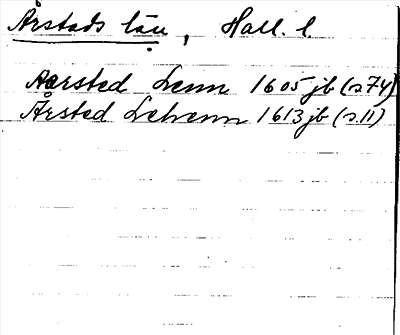 Årstads län, Hall. l.
Aarsted Lenn 1605 jb (s.74)
Årsted Lehenn 1613 jb (s.11)